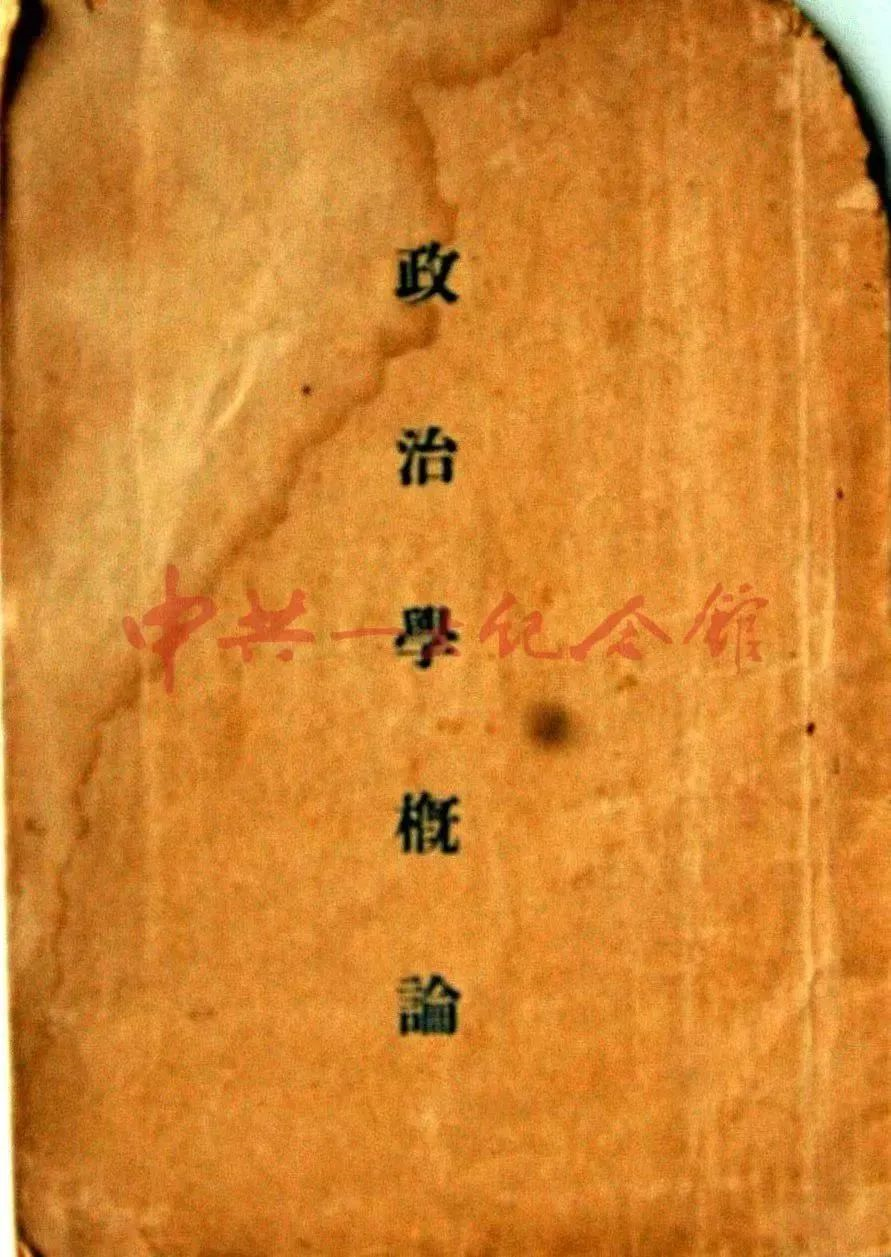 政治學概論
中共一大纪念館